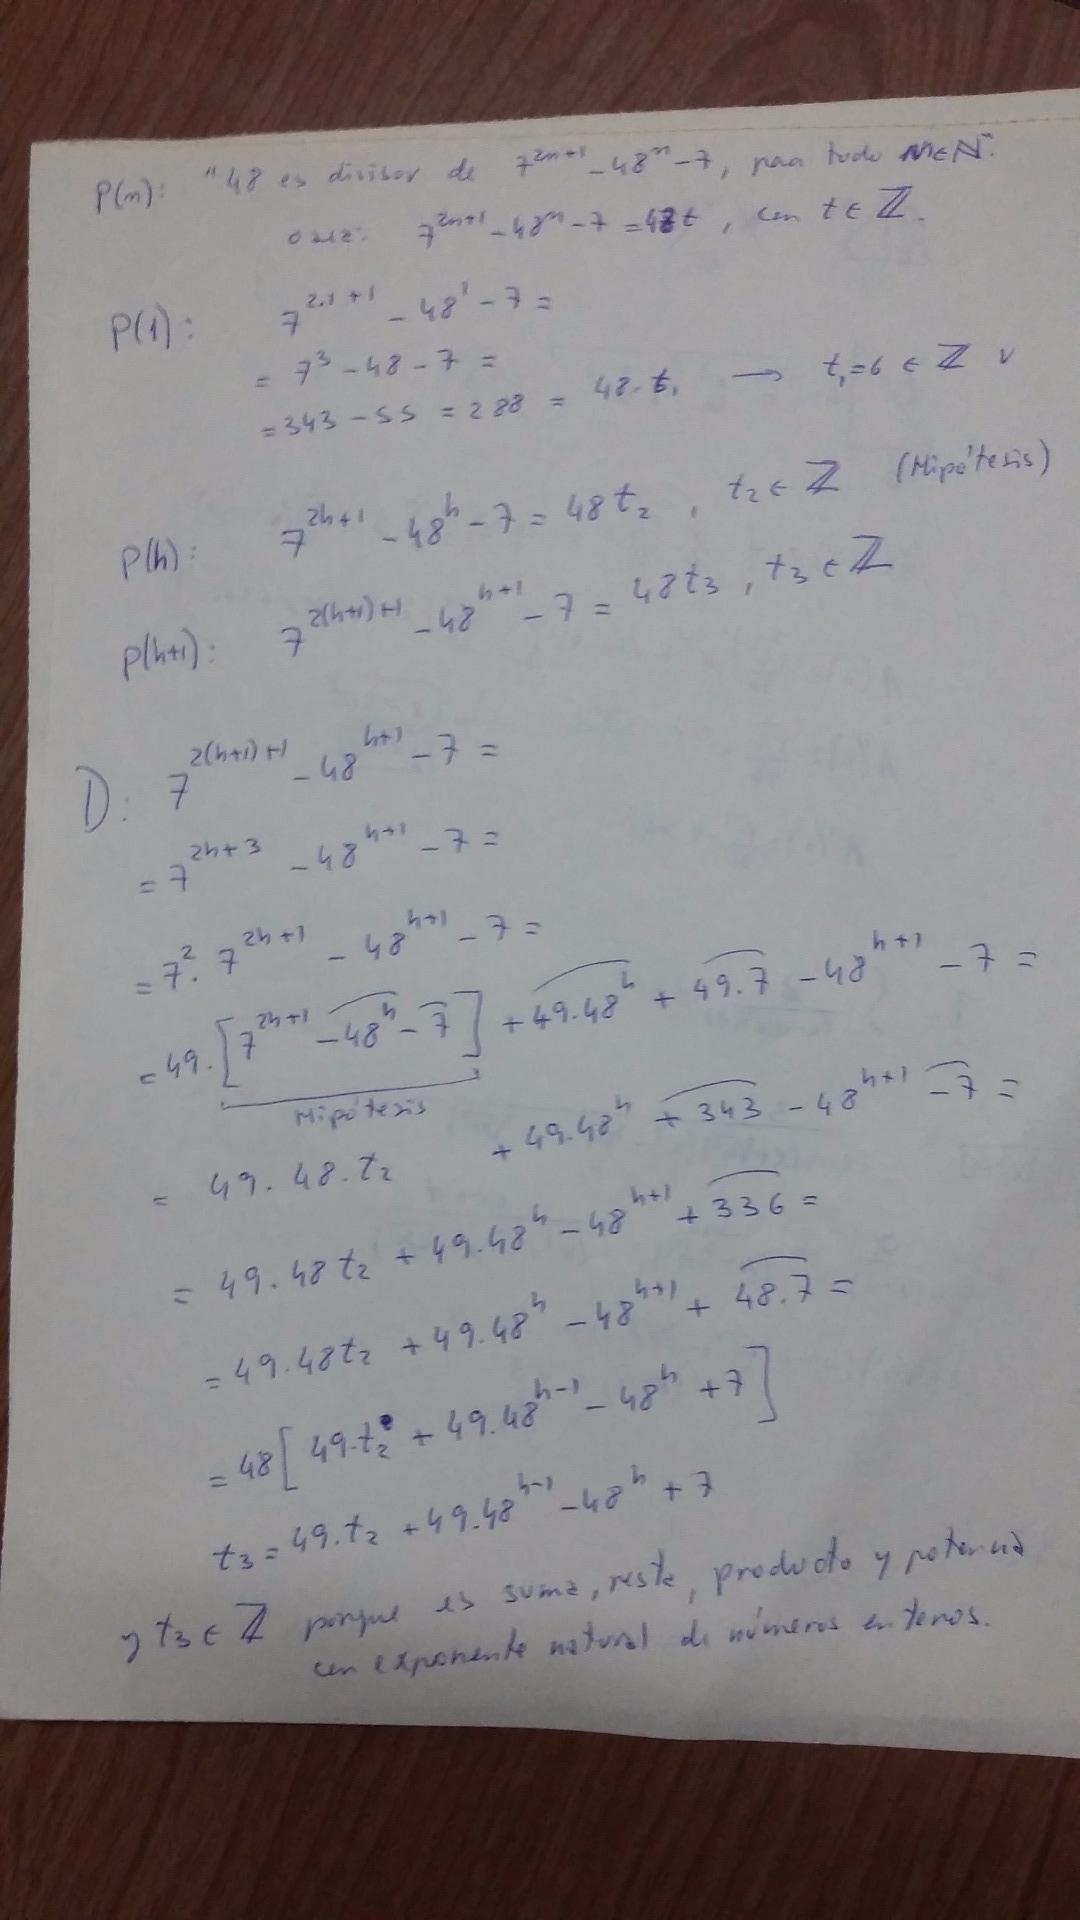 P(n): "48 es divisor de 7^{2n+1} - 48^n - 7, para todo n∈N".
o sea: 7^{2n+1} - 48^n - 7 = 48t, con t∈ℤ.
P(1): 7^{2.1+1} - 48^1 - 7 =
= 7^3 - 48 - 7 =
= 343 - 55 = 288 = 48.t_1 → t_1 = 6 ∈ ℤ ✓
P(h): 7^{2h+1} - 48^h - 7 = 48t_2, t_2 ∈ ℤ (Hipótesis)
P(h+1): 7^{2(h+1)+1} - 48^{h+1} - 7 = 48t_3, t_3 ∈ ℤ
D: 7^{2(h+1)+1} - 48^{h+1} - 7 =
= 7^{2h+3} - 48^{h+1} - 7 =
= 7^2. 7^{2h+1} - 48^{h+1} - 7 =
= 49.[7^{2h+1} - 48^h - 7] + 49.48^h + 49.7 - 48^{h+1} - 7 =
Hipótesis
= 49.48.t_2 + 49.48^h + 343 - 48^{h+1} - 7 =
= 49.48t_2 + 49.48^h - 48^{h+1} + 336 =
= 49.48t_2 + 49.48^h - 48^{h+1} + 48.7 =
= 48[49.t_2 + 49.48^{h-1} - 48^h + 7]
t_3 = 49.t_2 + 49.48^{h-1} - 48^h + 7
y t_3 ∈ ℤ porque es suma, resta, producto y potencia
con exponente natural de números enteros.